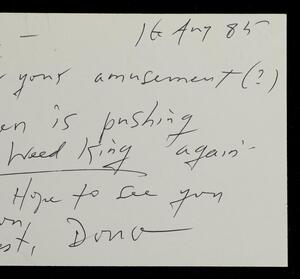 16 Aug 85
your amusement (?)
en is pushing
Weed King again -
Hope to see you
on,
st, Dono